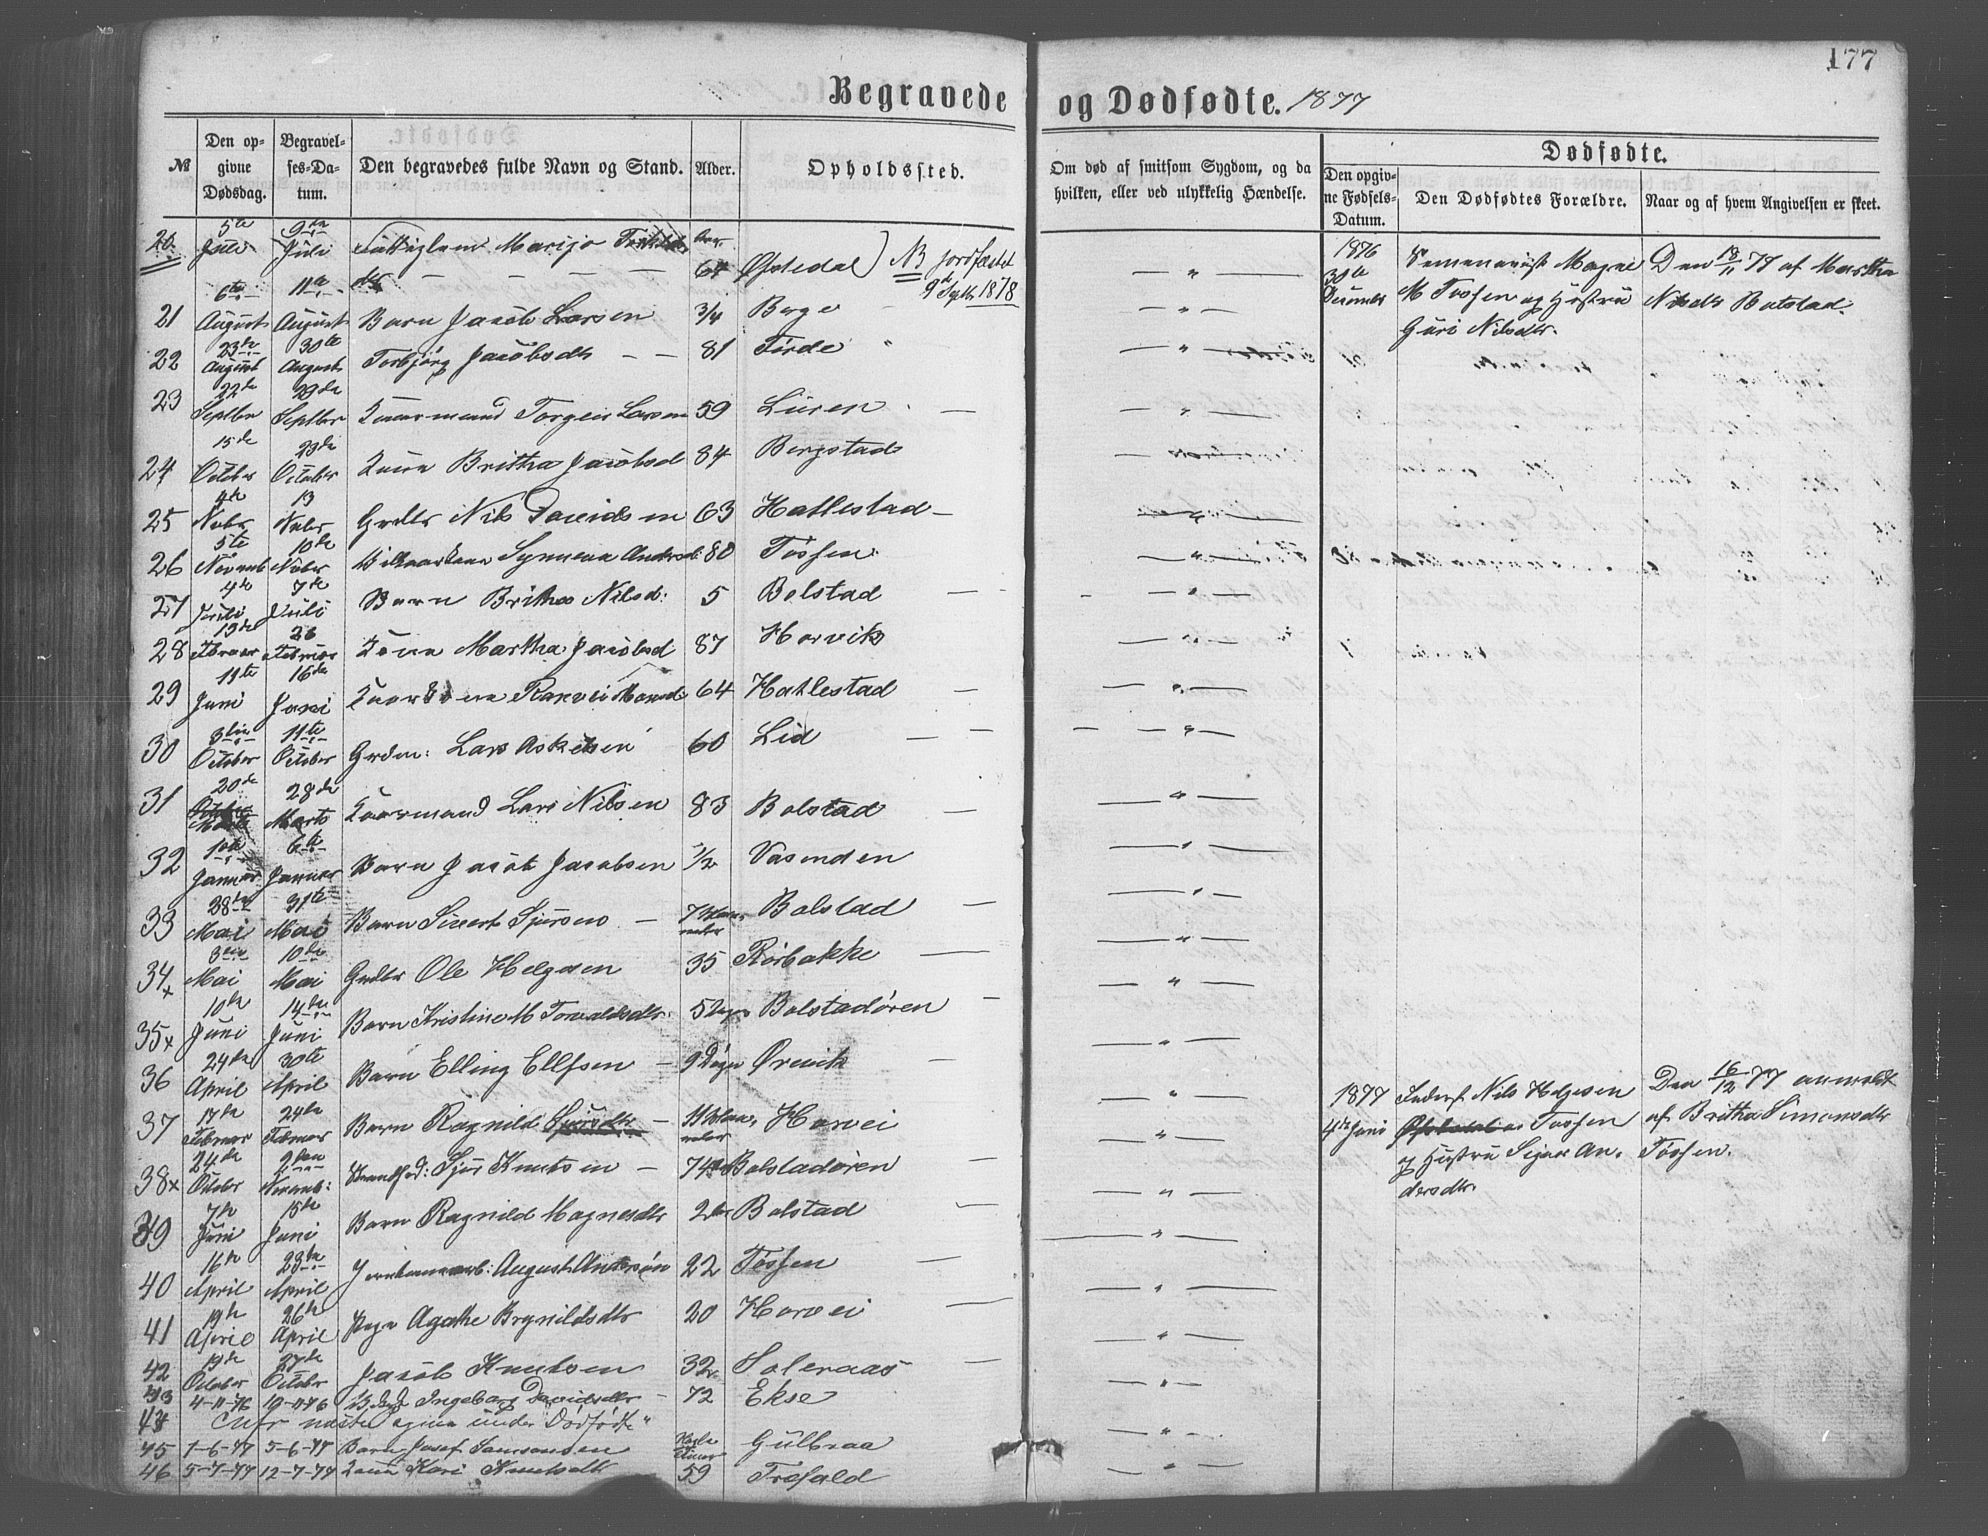 177
Begravede og Dødfødte. 1877
№
Den opgivne Dødsdag.
Begravelses-Datum.
Den begravedes fulde Navn og Stand.
Alder.
Opholdssted.
Om død af smitsom Sygdom, og da hvilken, eller ved ulykkelig Hændelse.
Dødfødte.
Den opgivne Fødsels-Datum.
Den Dødfødtes Forældre.
Naar og af hvem Angivelsen er skeet.
20 5te Juli 9de Juli Marijo 64 Øfstedal NB Jordfæstet 1878
21 6te August 11te August Barn Jacob Larsen 3/4 Berge
22 23de August 30te August Torbjørg Jacobsdtr 81 Førde
23 22de Septbr 29de Septber Kaarmand Torgeir Larsen 59 Lüren
24 15de October 23de October Kone Britha Jacobsd 84 Bergstad
25 4de Nobr 13 Nobr Grdbr Nils Davidsen 63 Hatlestad
26 5te Novemb 10de Nober Synneva Andersd: 80 Tøssen
27 4de Juli 7de Juli Barn Britha Nilsd: 5 Bolstad
28 19de Februar 26 Februar Kone Martha Jacobsd 87 Horvik
29 11te Juni 16de Juni Kaarkone Ranvei 64 Hatlestad
30 8de October 11te October Grdm: Lars Askelsen 60 Lid
31 20de Marts 28de Marts Kaarmand Lars Nilsen 83 Bolstad
32 1ste Januar 6te Januar Barn Jacob Jacobsen 1/2 Vasenden
33 28de Mai 31te Mai Barn Sivert Sjursen 7 Maaneder Bolstad
34 3die Mai 10de Mai Grdbr Ole Helgesen 35 Rørbakke
35 10de Juni 14de Juni Barn Kristine M Torvaldsdtr: 5 Bolstadøren
36 24de April 30te April Barn Elling Ellfsen 9 Døgn Ørevik
37 17de Februar 24de Februar Barn Ragnild Sjursdtr 11 Maaneder Horvei
38 24de October 2den Novemb: Strandsed: Sjur Knutsen 74 Bolstadøren
39 7de Juni 15de Juni Barn Ragnild Magnesdtr 2 Bolstad
40 16de April 23de April August Andersøn 22 Tøssen
41 19de April 26de April Pige Agathe Brynildsdtr 20 Horvei
42 19de October 27de October Jacob Knutsen 32 Soleraas
43 4-11-76 19-11-76 Ingeborg Davidsdtr 72 Ekse
44 under "Dødfødte"
45 1-6-77 5-6-77 Barn Josef Samsonsen Gülbraa
46 5-7-77 12-7-77 Kone Kari Knutsdtr 59 Trefald
1876 30te Magne M Tossen og Hustru Guri Nilsdtr. Den 18/11 77 af Martha Nilsdtr Bolstad.
1877 4de Juni Inderst Nils Helgesen Tossen og Hustru Sigur Andersdtr. Den 16/12 77 anmeldt af Britha Simonsdtr Tössen.